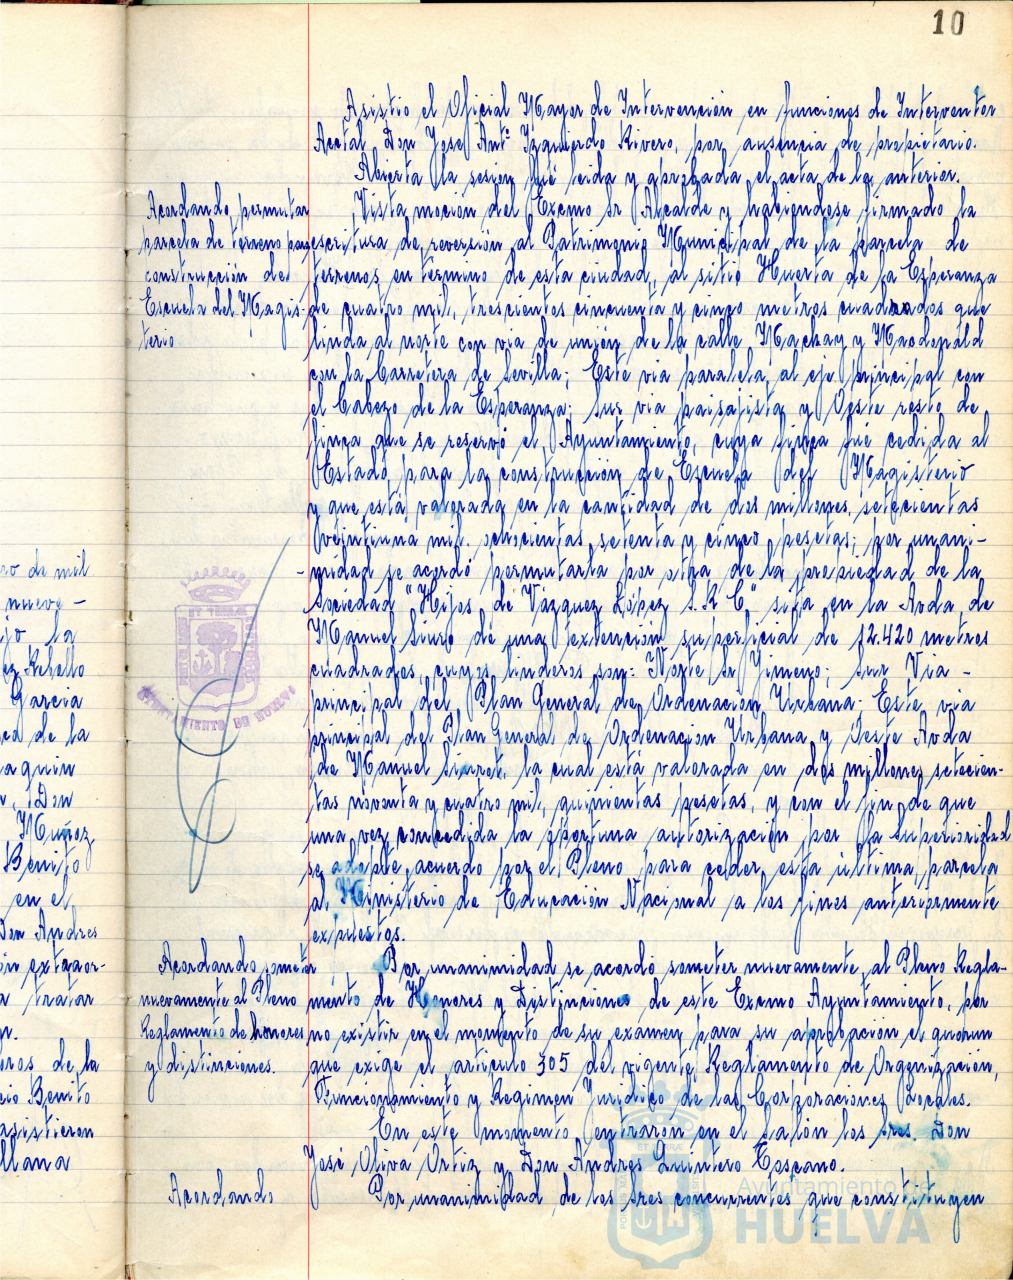 10
Asistió el Oficial Mayor de Intervención en funciones de Interventor
Acctal Don Jose Antº Izquierdo Rivero, por ausencia de propietario.
Abierta la sesión fué leida y aprobada el acta de la anterior.
Acordando permutar
parcela de terreno para
construcción de
Escuela del Magis-
terio
Vista moción del Excmo Sr Alcalde y habiendose firmado la
escritura de reversión al Patrimonio Municipal de la parcela de
terrenos en termino de esta ciudad, al sitio Huerta de la Esperanza
de cuatro mil, trescientos cincuenta y cinco metros cuadrados que
linda al norte con via de unión de la calle Mackay y Macdonald
con la Carretera de Sevilla; Este via paralela al eje principal con
el Cabezo de la Esperanza; Sur via paisajista y Oeste resto de
finca que se reservó el Ayuntamiento, cuya finca fué cedida al
Estado para la construcción de Escuela del Magisterio
y que está valorada en la cantidad de dos millones, setecientas
veintiuna mil, ochocientas setenta y cinco pesetas; por unani-
midad se acordó permutarla por otra de la propiedad de la
Sociedad "Hijos de Vázquez López S.R.C." sita en la Avda de
Manuel Siurot de una extención superficial de 12.420 metros
cuadrados cuyos linderos son: Norte Sr Jimeno; Sur Via -
principal del Plan General de Ordenacion Urbana; Este via
principal del Plan General de Ordenación Urbana y Oeste Avda
de Manuel Siurot, la cual está valorada en dos millones setecien-
tas noventa y cuatro mil, quinientas pesetas, y con el fin de que
una vez concedida la oportuna autorización por la Superioridad
se adopte acuerdo por el Pleno para ceder esta ultima parcela
al Ministerio de Educación Nacional a los fines anteriormente
expuestos.
Acordando someter
nuevamente al Pleno
Reglamento de honores
y distinciones.
Por unanimidad se acordó someter nuevamente al Pleno Regla-
mento de Honores y Distinciones de este Excmo Ayuntamiento, por
no existir en el momento de su examen para su aprobación el quorum
que exige el articulo 305 del vigente Reglamento de Organización,
Funcionamiento y Regimen Juridico de las Corporaciones Locales.
En este momento entraron en el Salón los Sres. Don
José Oliva Ortiz y Don Andres Quintero Toscano.
Acordando
Por unanimidad de los Sres concurrentes que constituyen
AYUNTAMIENTO DE HUELVA
Ayuntamiento de
HUELVA
ro de mil
nueve -
jo la
ez Rebollo
Garcia
ca de la
aquin
n, Don
Muñoz
Benito
en el
Don Andres
ón extraor-
a tratar
n.
oros de la
cio Benito
asistieron
llana